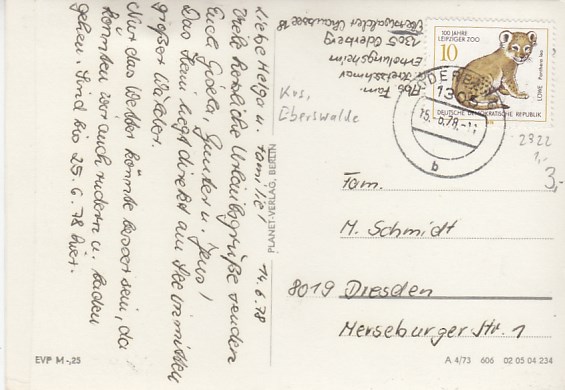 Liebe Helga u. Familie! 14.6.78
Viele herzliche Urlaubsgrüße senden
Euch Gisela, Günter u. Jens!
Das Heim liegt direkt am See inmitten
großer Wälder.
Nur das Wetter könnte besser sein, da
könnten wir auch rudern u. baden
gehen. Sind bis 25.6.78 hier.
Abs. Fam.
Erholungsheim
1305 Oderberg
Eberswalder Chaussee 18
Krs.
Eberswalde
100 JAHRE
LEIPZIGER ZOO
10
LÖWE Panthera leo
DEUTSCHE DEMOKRATISCHE REPUBLIK
ODERBERG
130
15.6.78
b
2322
1,-
3,-
PLANET-VERLAG, BERLIN
Fam.
M. Schmidt
8019 Dresden
Merseburger Str. 1
EVP M -,25
A 4/73 606 02 05 04 234